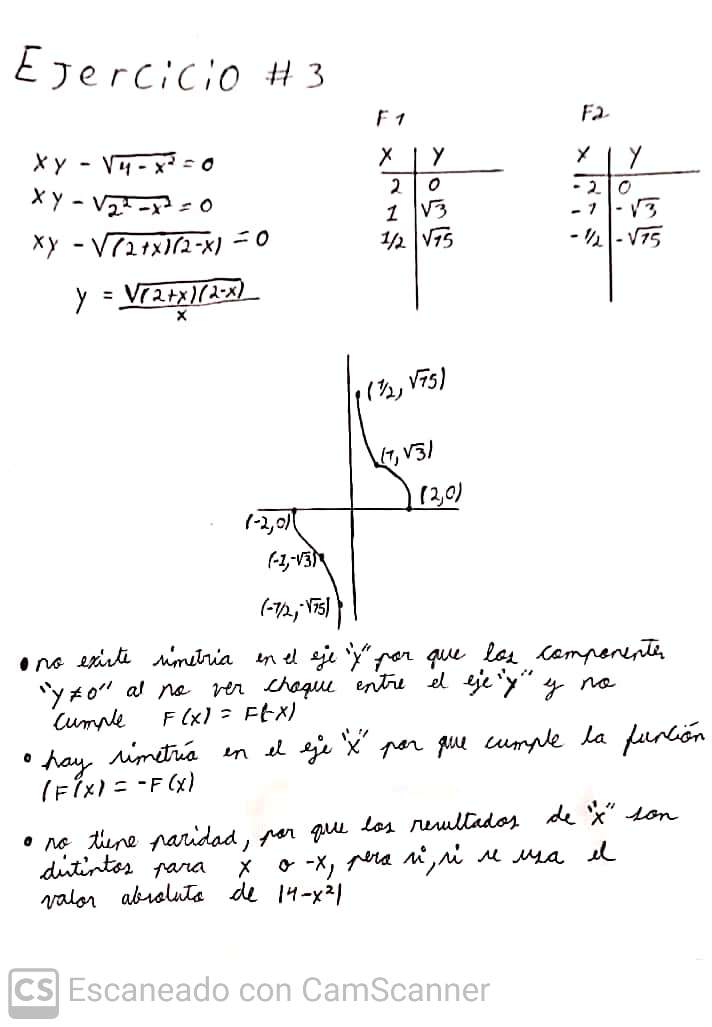 Ejercicio #3
xy - √4-x² = 0
xy - √2²-x² = 0
xy - √(2+x)(2-x) = 0
y = √(2+x)(2-x)
x
F1
x | y
2 | 0
1 | √3
1/2 | √15
F2
x | y
-2 | 0
-1 | -√3
-1/2 | -√15
(1/2, √15)
(1, √3)
(2,0)
(-2,0)
(-1,-√3)
(-1/2,-√15)
• no existe simetria en el eje "y" por que las componentes
"y≠0" al no ver choque entre el eje "y" y no
cumple F(x) = F(-x)
• hay simetría en el eje "x" por que cumple la función
(F(x) = -F(x)
• no tiene paridad, por que los resultados de "x" son
distintos para x o -x, pero si, si se usa el
valor absoluto de |4-x²|
CS Escaneado con CamScanner